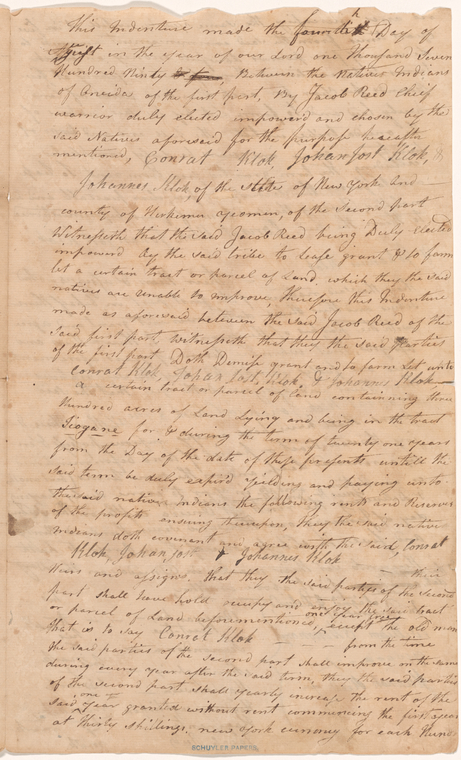 This Indenture made the fourteth Day of
August in the year of our Lord one thousand Seven
Hundred Ninty Between the Natives Indians
of Oneidas of the first part, By Jacob Reed Chief
warrior duly elected impowered and chosen by the
said Natives aforesaid for the purpose
mentioned, Conrat Klok Johan Jost Klok,
Johannes Klok, of the States of New York and
county of Herkemer yeomen, of the Second part
Witnesseth that the said Jacob Reed being Duly elected
impowerd by the said tribe to lease grant & to farm
let a certain tract or parcel of Land which they the said
natives are unable to improve, therefore this Indenture
made as aforesaid between the said Jacob Reed of the
said first part, Witnesseth that they the said parties
of the first part Doth Demise grant and to farm Let unto
Conrat Klok Johan Jost Klok, & Johannes Klok
a certain tract or parcel of land containing three
Hundred acres of Land lying and being in the tract
for & during the term of twenty one years
from the Day of the date of these presents untill the
said term be duly expird yielding and paying unto
the said native Indians the following rents and Reserves
of the profits ensuing thereupon, they the said native
Indians doth covenant and agree with the said Conrat
Klok, Johan Jost & Johannes Klok their
Heirs and assigns, that they the said parties of the second
part shall have hold occupy and enjoy the said tract
or parcel of Land beforementioned, one year free except the old man
that is to say Conrat Klok from the time
the said parties of the second part shall improve on the same
during every year after the said term, they the said parties
of the second part shall yearly increase the rent of the
said one year granted without rent commencing the first year
at thirty shillings new york currency for each Hund
SCHUYLER PAPERS